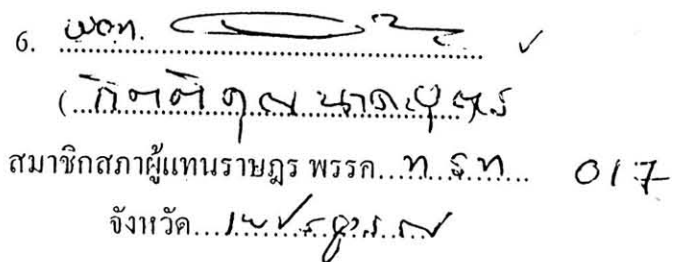 6. พอท. ✓
(กิตติคุณ นาคะบุตร)
สมาชิกสภาผู้แทนราษฎร พรรค...ท.ร.ท... 017
จังหวัด...เพชรบูรณ์